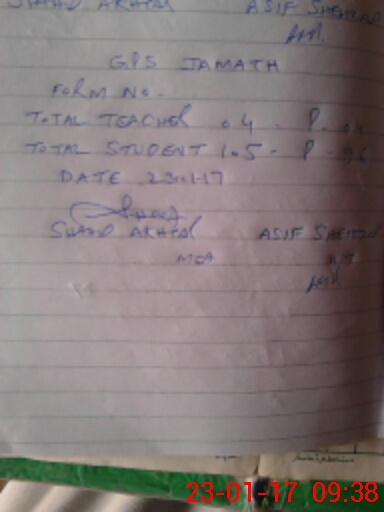 SHAHD AKHTAR ASIF SHEHZAD
GPS JAMATH
FORM NO.
TOTAL TEACHER 04 - P. 04
TOTAL STUDENT 105 - P - 96
DATE 23-1-17
SHAHD AKHTAR ASIF SHEHZAD
MEA
23-01-17 09:38